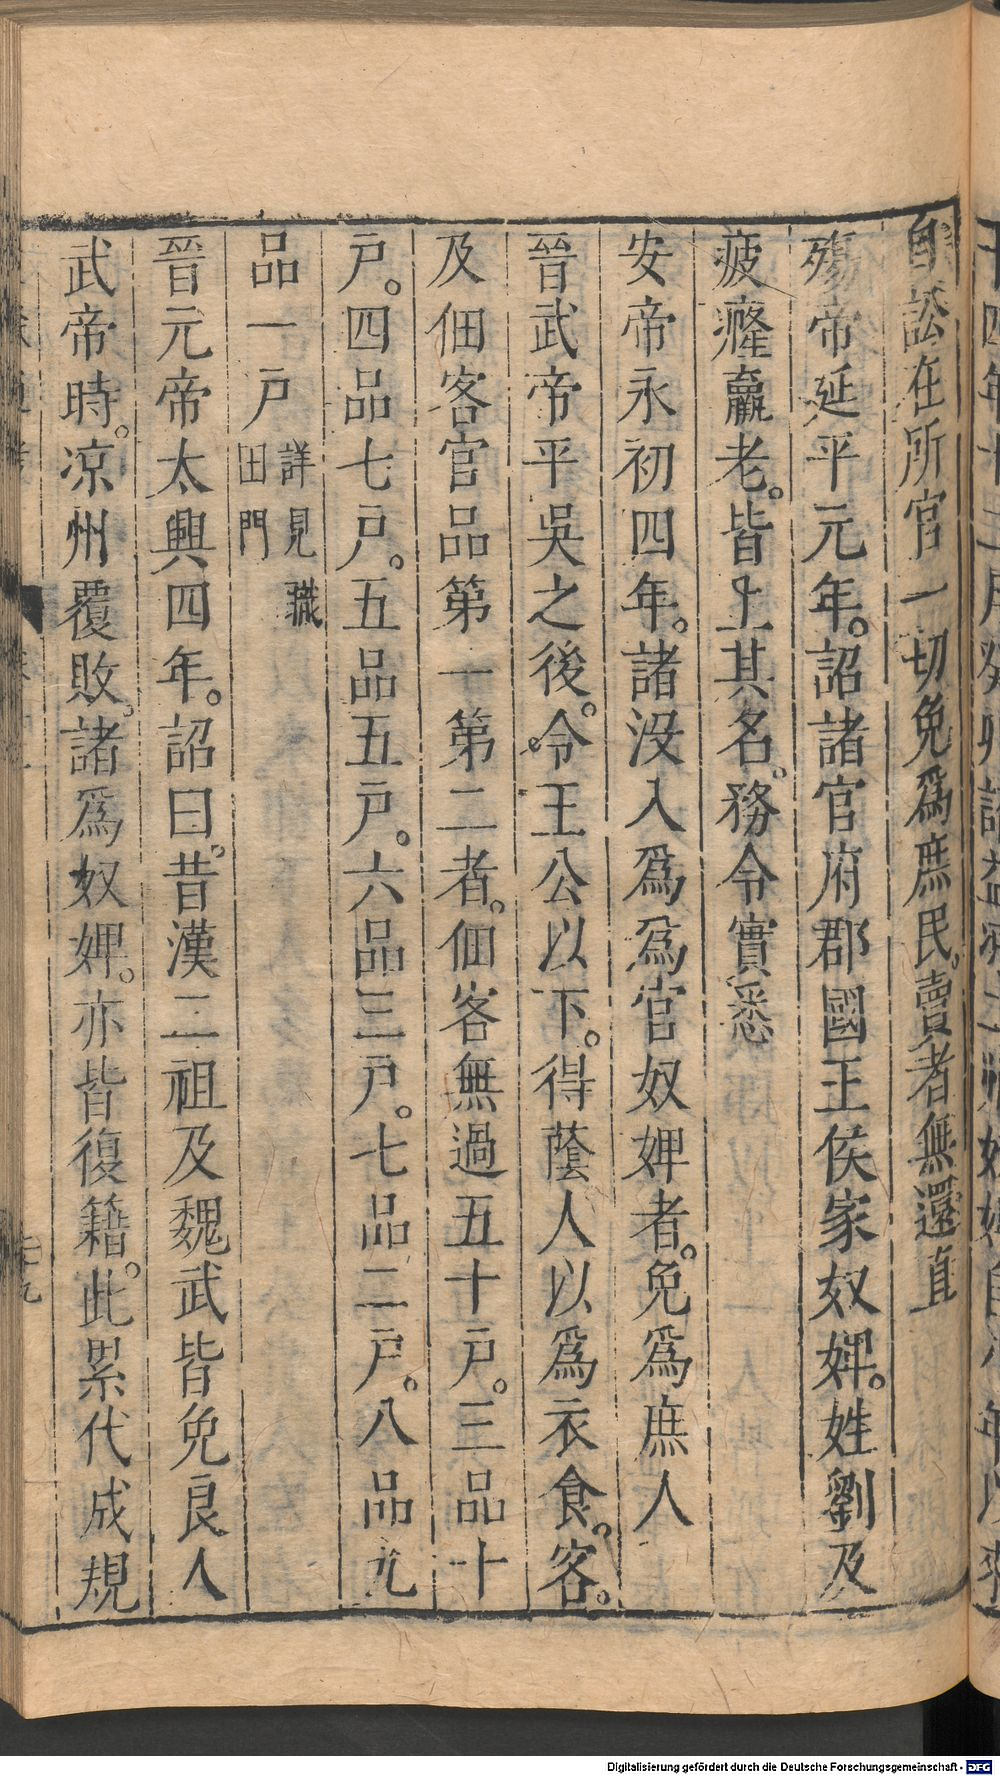 自訟在所官一切免爲庶民。賣者無還直
殤帝延平元年。詔諸官府郡國王侯家奴婢。姓劉及
疲癃羸老。皆上其名。務令實悉
安帝永初四年。諸沒入爲爲官奴婢者。免爲庶人
晉武帝平吳之後。令王公以下。得蔭人以爲衣食。客。
及佃客官品第一第二者。佃客無過五十戸。三品十
戸。四品七戸。五品五戸。六品三戸。七品二戸。八品九
品一戸詳見職田門
晉元帝太興四年。詔曰。昔漢二祖及魏武皆免良人
武帝時。凉州覆敗。諸爲奴婢。亦皆復籍。此累代成規
Digitalisierung gefördert durch die Deutsche Forschungsgemeinschaft - DFG